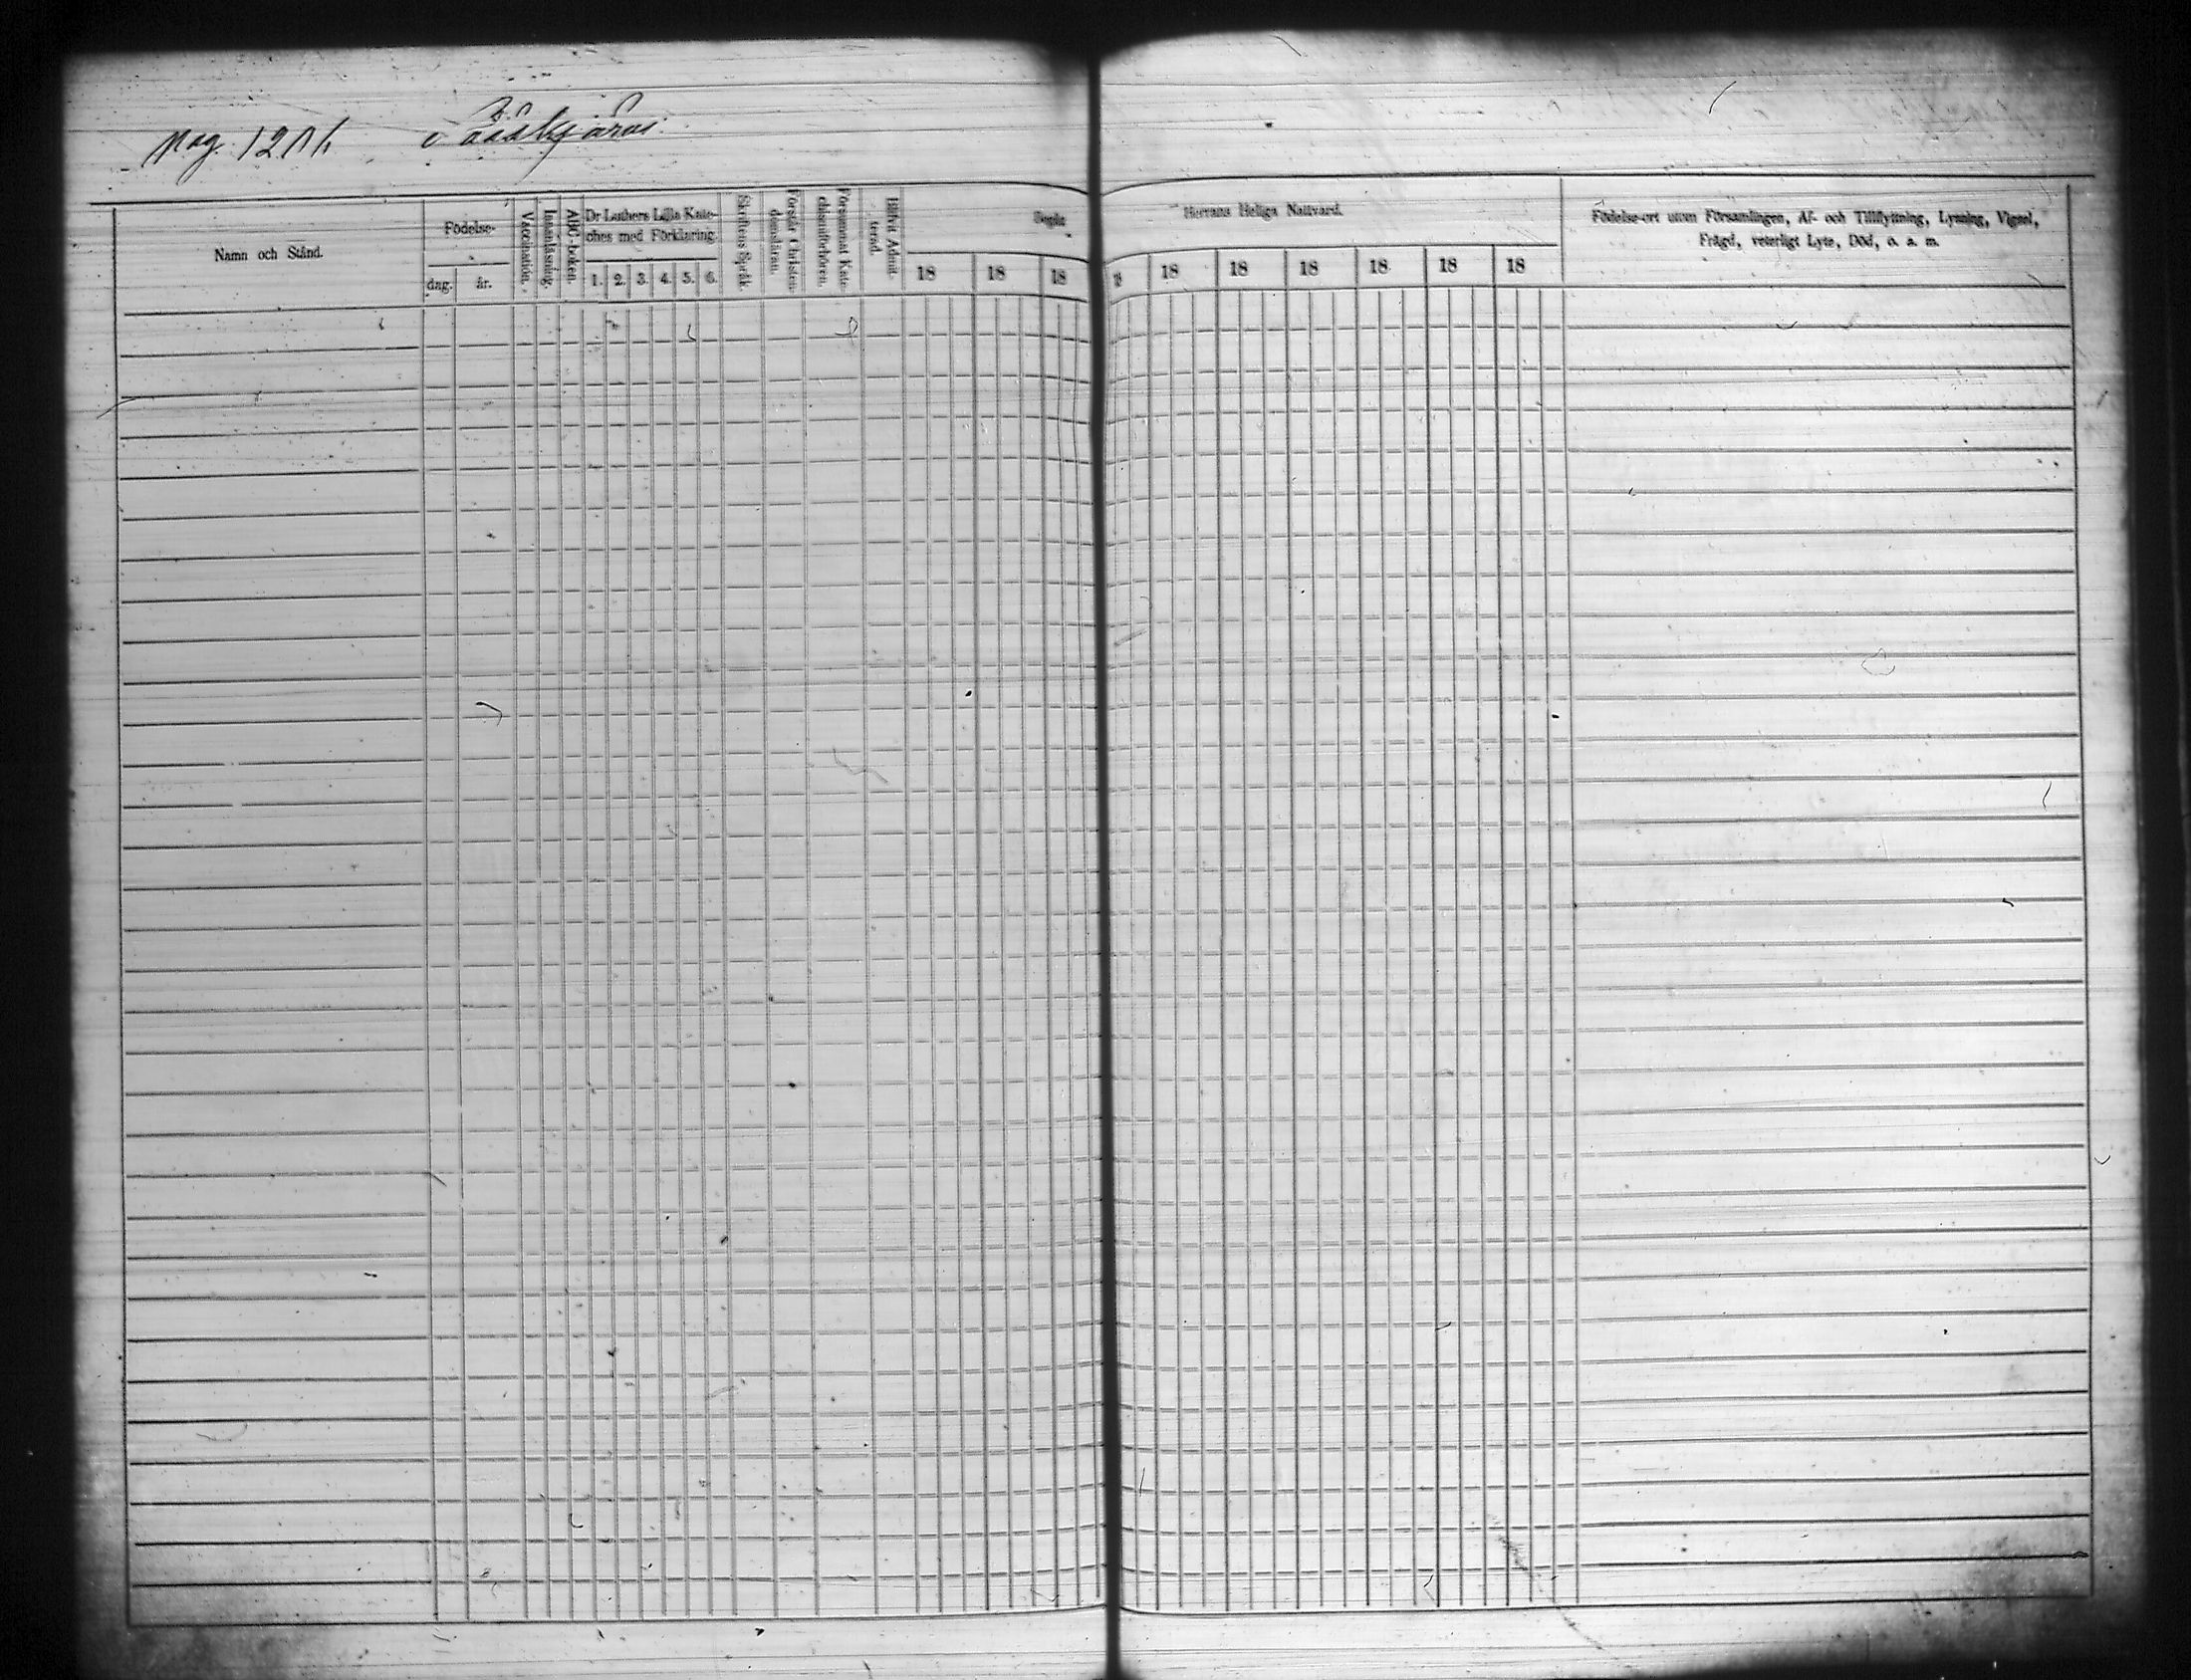 pag.
Namn och Stånd.
Födelse-
dag.
år.
Vaccination.
Innanläsning.
ABC-boken.
Dr Luthers Lilla Kate-
ches med Förklaring.
1. 2. 3. 4. 5. 6.
Skriftens Språk.
Förstår Christen-
domsläran.
Försummat Kate-
chismiförhören.
Blifvit Admit-
terad.
Begått
18 18 18
Herrans Heliga Nattvard.
18 18 18 18 18 18 18
Födelse-ort utom Församlingen, Af- och Tillflyttning, Lysning, Vigsel,
Frägd, veterligt Lyte, Död, o. a. m.